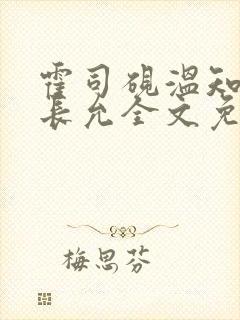 霍司砚温知
长允全文免
梅思芬